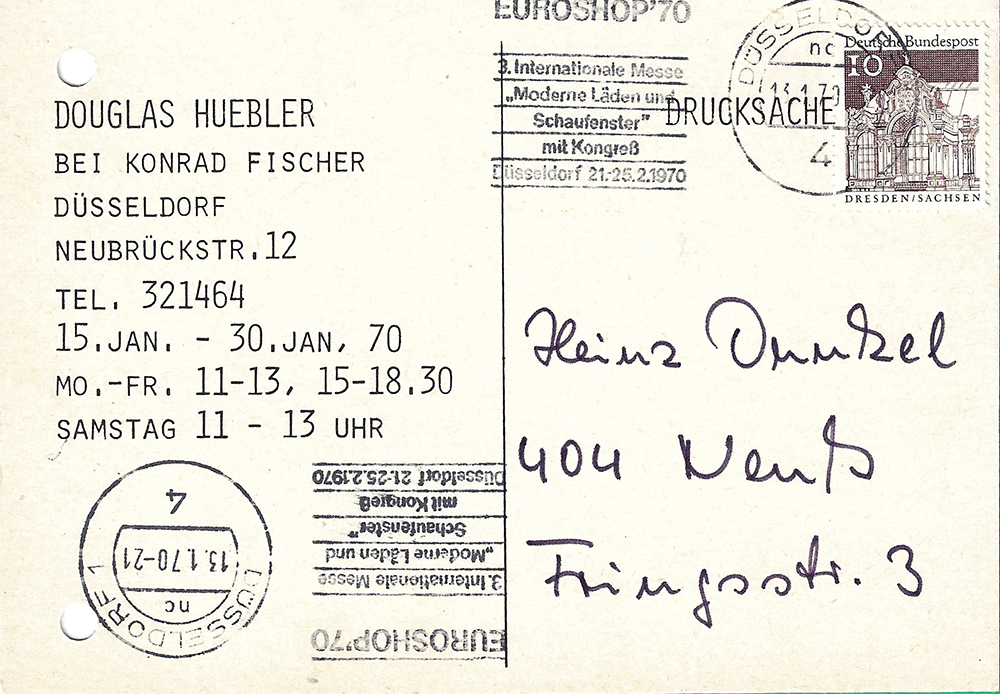 DOUGLAS HUEBLER
BEI KONRAD FISCHER
DÜSSELDORF
NEUBRÜCKSTR.12
TEL. 321464
15.JAN. - 30.JAN, 70
MO.-FR. 11-13, 15-18.30
SAMSTAG 11 - 13 UHR
EUROSHOP'70
3. Internationale Messe
„Moderne Läden und
Schaufenster"
mit Kongreß
Düsseldorf 21-25.2.1970
DRUCKSACHE
DÜSSELDORF
nc
13.1.70
4
Deutsche Bundespost
10
DRESDEN/SACHSEN
Heinz Dunkel
404 Neuß
Fringsstr. 3
DÜSSELDORF 1
nc
13.1.70-21
4
EUROSHOP'70
3. Internationale Messe
„Moderne Läden und
Schaufenster"
mit Kongreß
Düsseldorf 21-25.2.1970